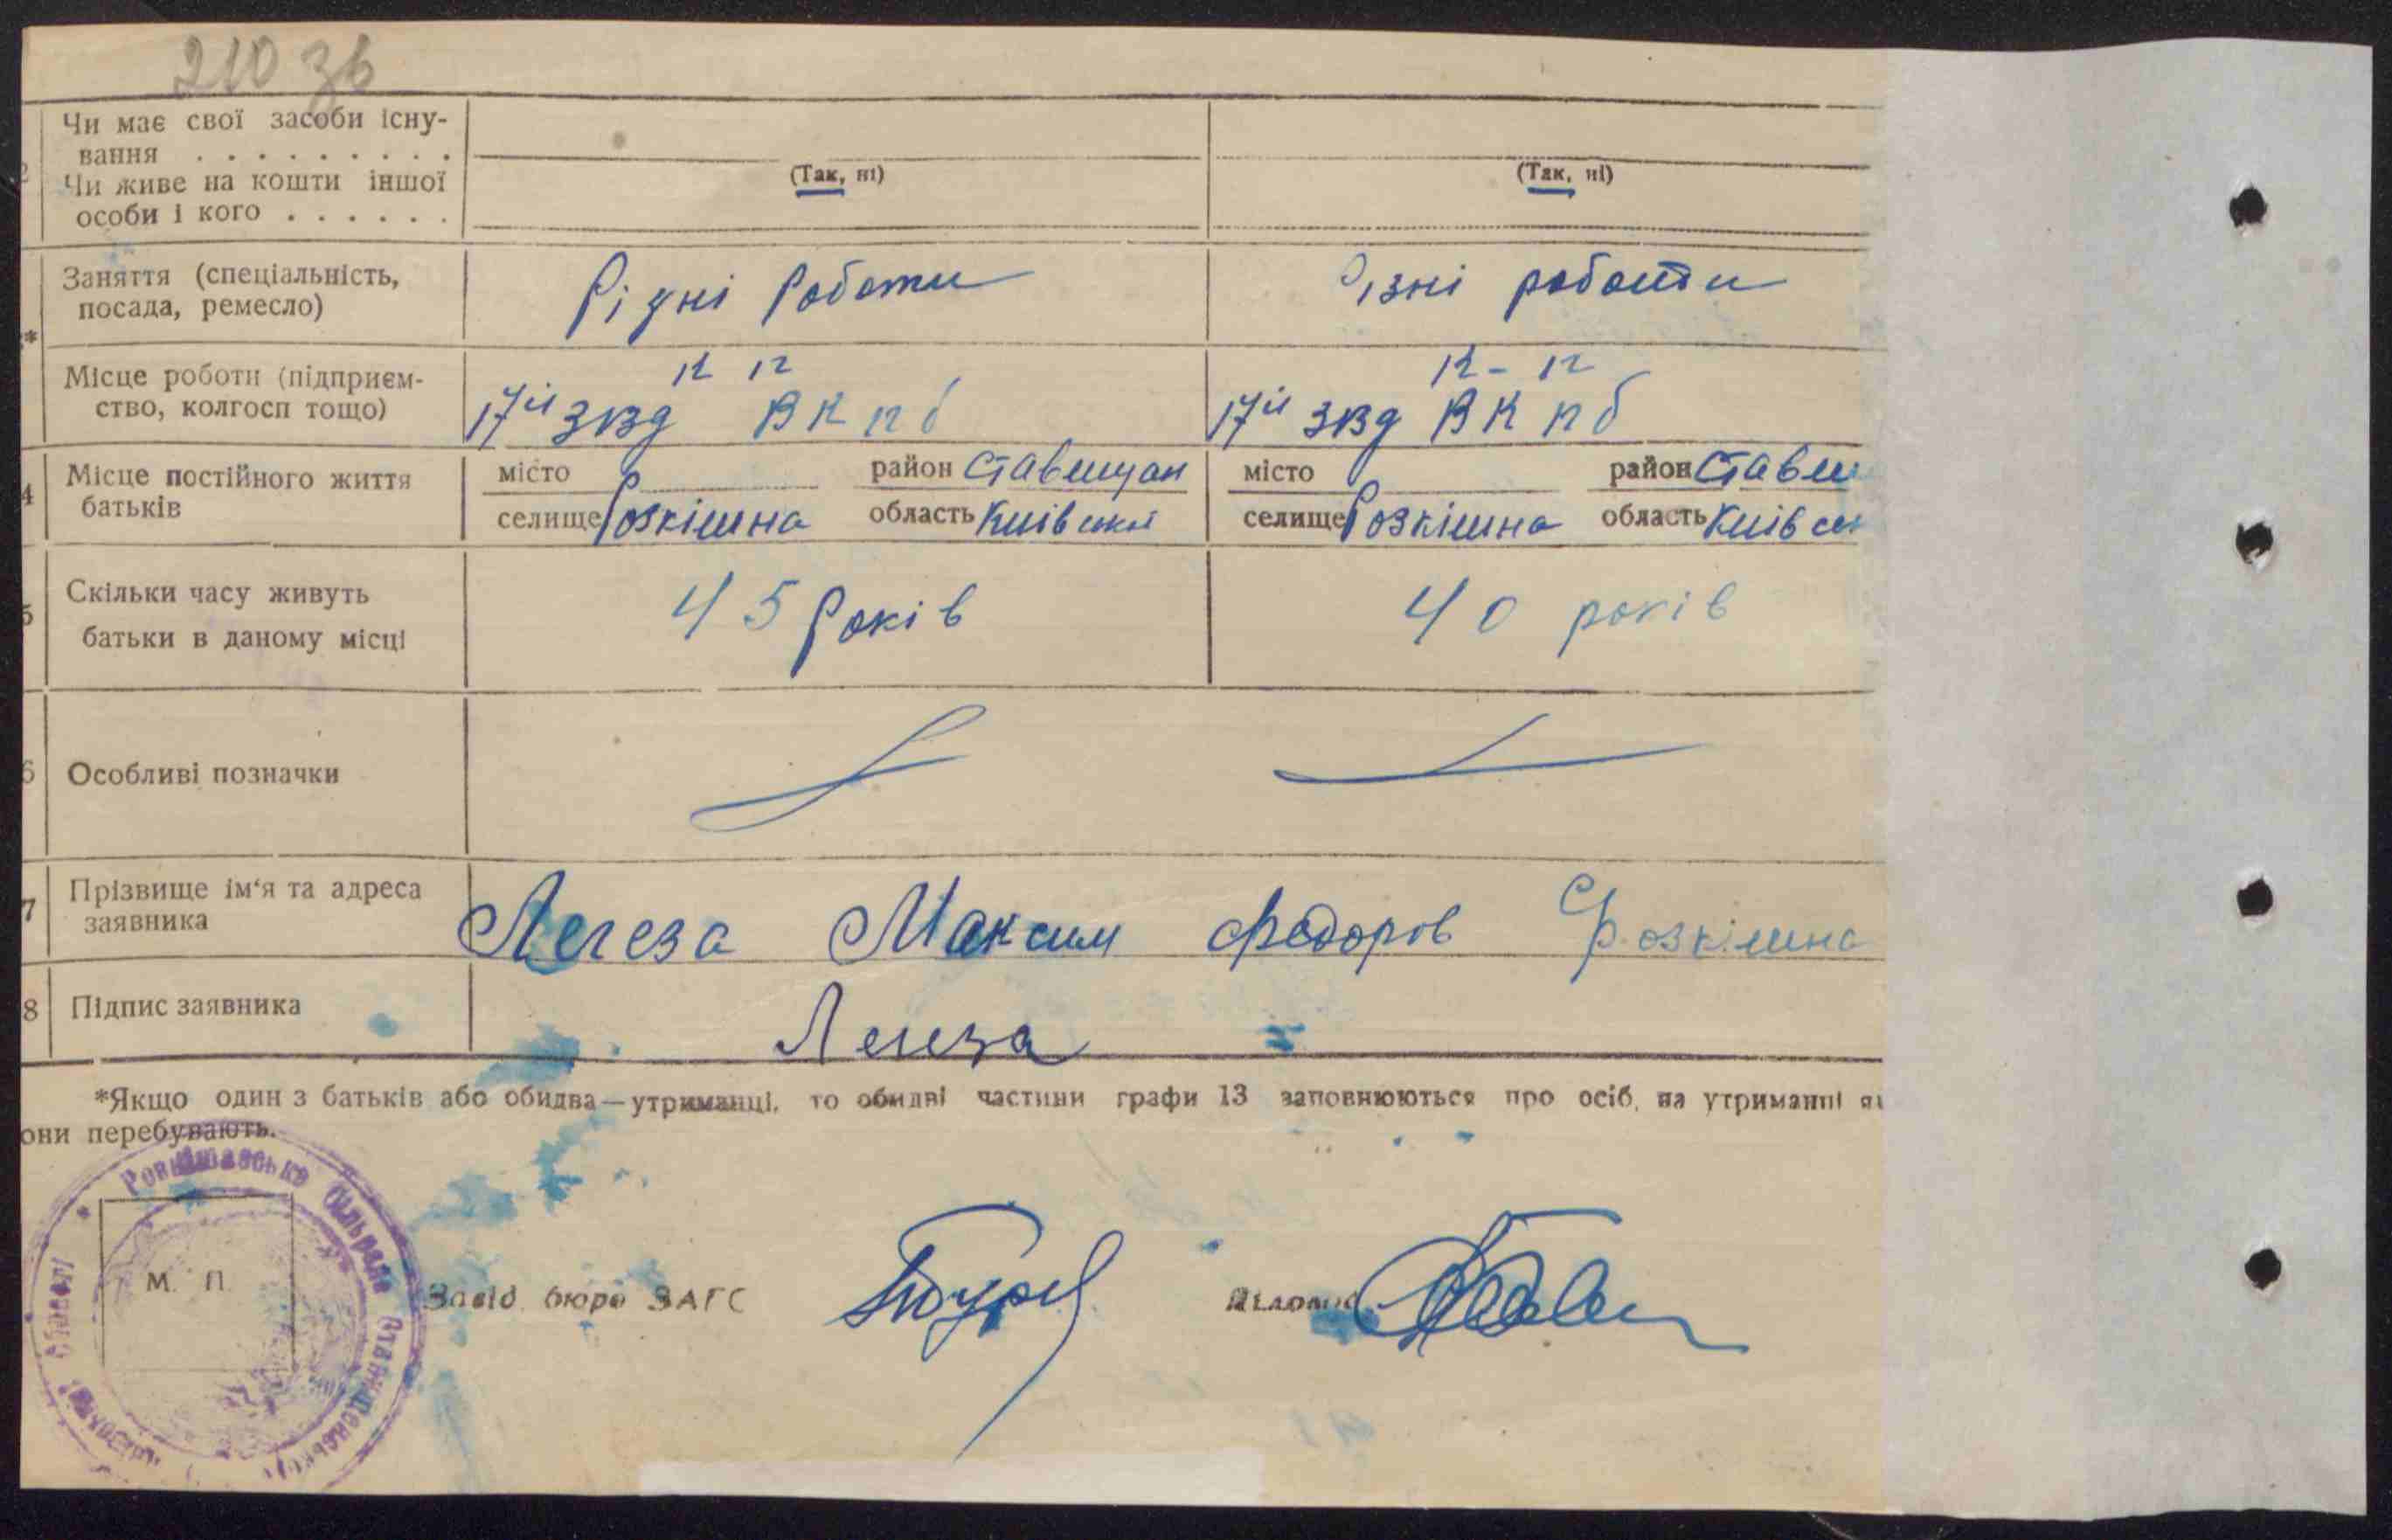 210 зв
Чи має свої засоби існу-
вання . . . . . . . . .
Чи живе на кошти іншої
особи і кого . . . . . .
(Так, ні)
(Так, ні)
Заняття (спеціальність,
посада, ремесло)
Різні роботи
Різні роботи
Місце роботи (підприєм-
ство, колгосп тощо)
к г
17й зїзд ВКПб
к-г
17й зїзд ВКПб
4 Місце постійного життя
батьків
місто район Ставищан
селище Розкішна область Київської
місто район Стави
селище Розкішна область Київськ
5 Скільки часу живуть
батьки в даному місці
45 років
40 років
6 Особливі позначки
7 Прізвище ім'я та адреса
заявника
Легеза Максим Федоров с Розкішна
8 Підпис заявника
Легеза
*Якщо один з батьків або обидва—утриманці, то обидві частини графи 13 заповнюються про осіб, на утриманні як
они перебувають.
М. П.
Завід. бюро ЗАГС
Діловод